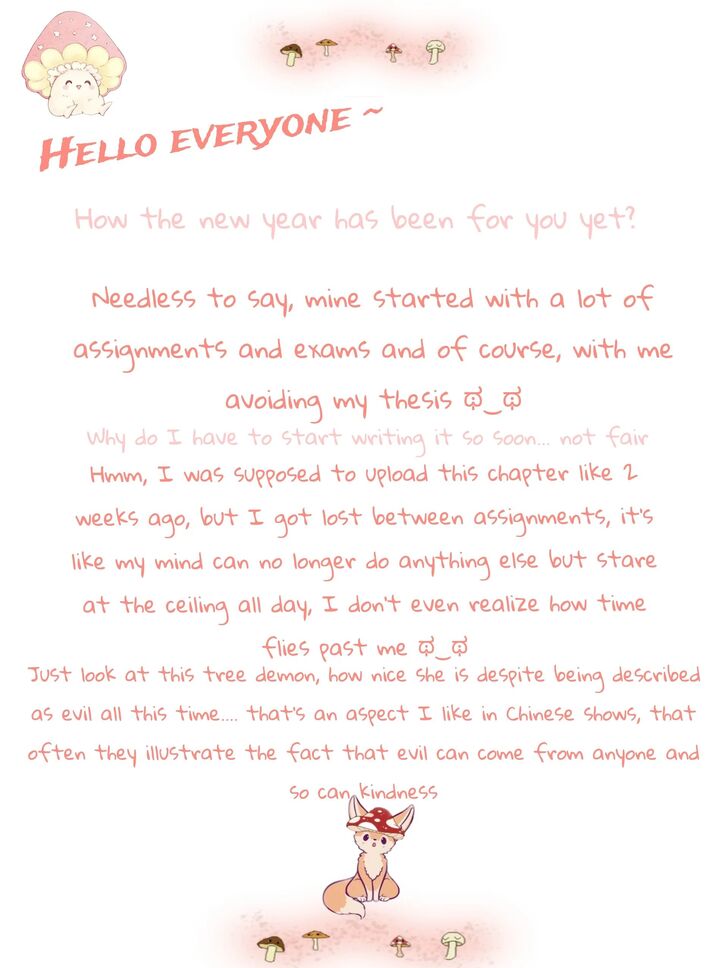 Hello everyone ~
How the new year has been for you yet?
Needless to say, mine started with a lot of
assignments and exams and of course, with me
avoiding my thesis ಥ‿ಥ
Why do I have to start writing it so soon... not fair
Hmm, I was supposed to upload this chapter like 2
weeks ago, but I got lost between assignments, it's
like my mind can no longer do anything else but stare
at the ceiling all day, I don't even realize how time
flies past me ಥ‿ಥ
Just look at this tree demon, how nice she is despite being described
as evil all this time.... that's an aspect I like in Chinese shows, that
often they illustrate the fact that evil can come from anyone and
so can kindness